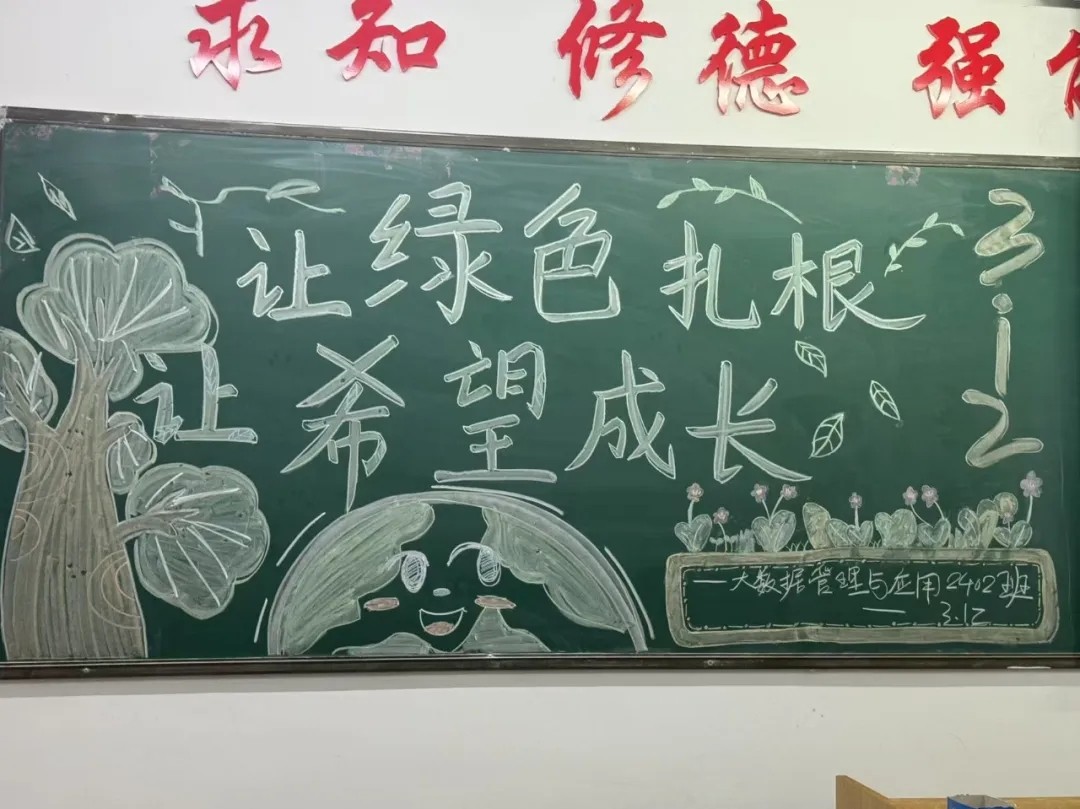 求知 修德 强
让绿色扎根
让希望成长
3.12
一大数据管理与应用2402班
— 3.12